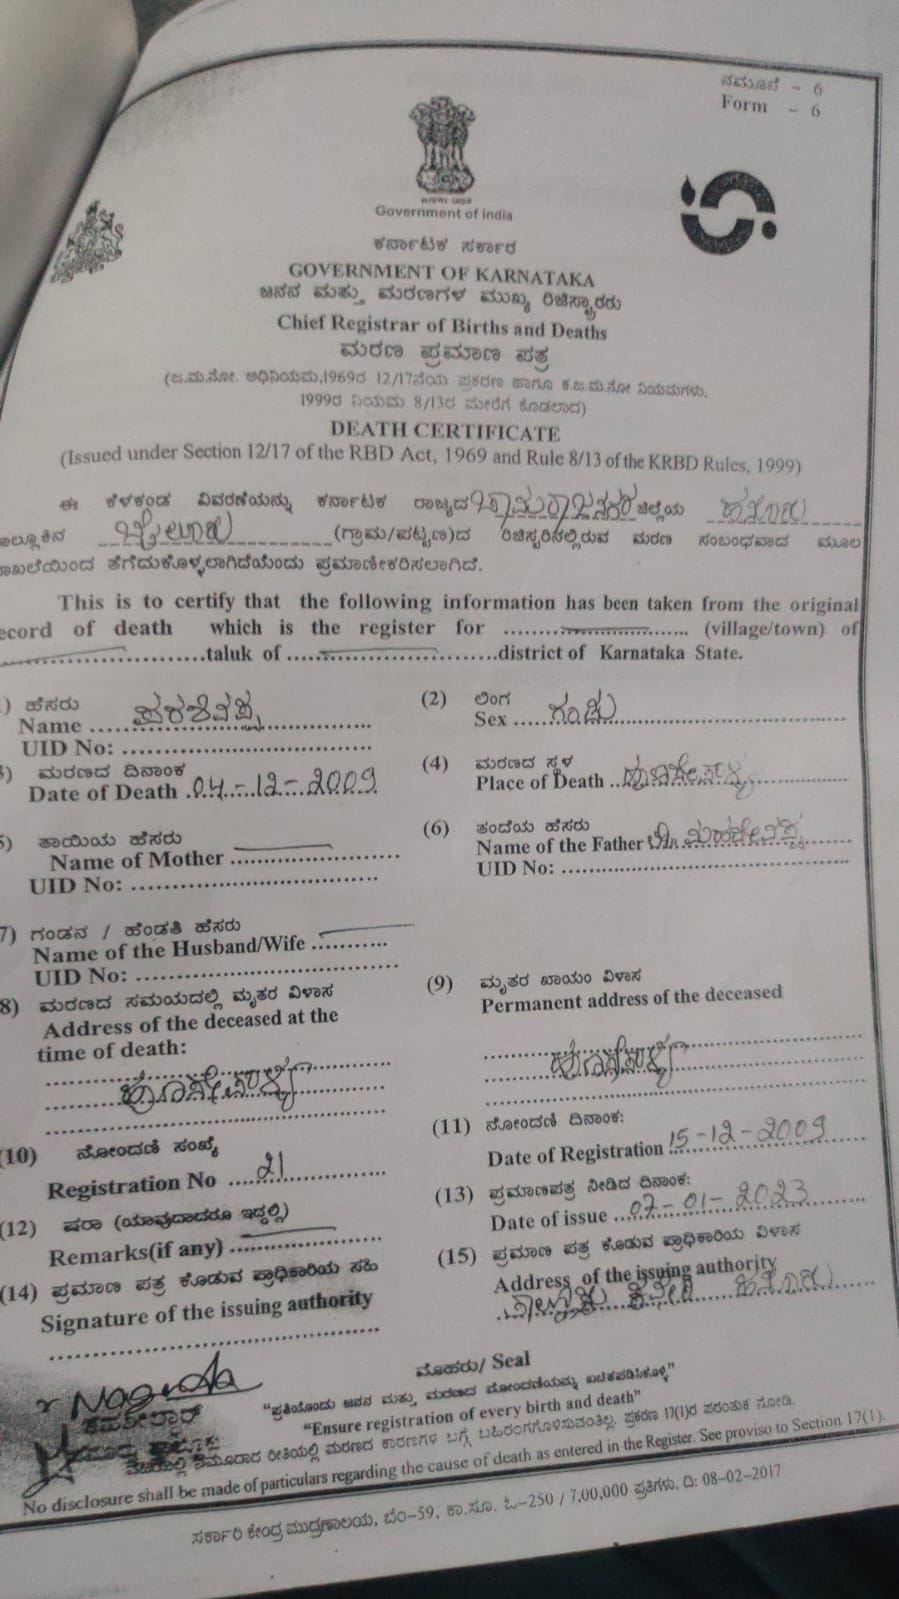 ನಮೂನೆ - 6
Form - 6
Government of India
ಕರ್ನಾಟಕ ಸರ್ಕಾರ
GOVERNMENT OF KARNATAKA
ಜನನ ಮತ್ತು ಮರಣಗಳ ಮುಖ್ಯ ರಿಜಿಸ್ಟ್ರಾರರು
Chief Registrar of Births and Deaths
ಮರಣ ಪ್ರಮಾಣ ಪತ್ರ
(ಜ.ಮ.ನೋ. ಅಧಿನಿಯಮ,1969ರ 12/17ನೆಯ ಪ್ರಕರಣ ಹಾಗೂ ಕ.ಜ.ಮ.ನೋ ನಿಯಮಗಳು,
1999ರ ನಿಯಮ 8/13ರ ಮೇರೆಗೆ ಕೊಡಲಾದ)
DEATH CERTIFICATE
(Issued under Section 12/17 of the RBD Act, 1969 and Rule 8/13 of the KRBD Rules, 1999)
ಈ ಕೆಳಕಂಡ ವಿವರಣೆಯನ್ನು ಕರ್ನಾಟಕ ರಾಜ್ಯದ ಚಾಮರಾಜನಗರ ಜಿಲ್ಲೆಯ ಹನೂರು
(ಗ್ರಾಮ/ಪಟ್ಟಣ)ದ ರಿಜಿಸ್ಟರಿನಲ್ಲಿರುವ ಮರಣ ಸಂಬಂಧವಾದ ಮೂಲ
ತೆಗೆದುಕೊಳ್ಳಲಾಗಿದೆಯೆಂದು ಪ್ರಮಾಣೀಕರಿಸಲಾಗಿದೆ.
This is to certify that the following information has been taken from the original
record of death which is the register for .................... (village/town) of
....................taluk of ....................district of Karnataka State.
ಹೆಸರು
Name
UID No:
(2) ಲಿಂಗ
Sex ಗಂಡು
ಮರಣದ ದಿನಾಂಕ
Date of Death 04-12-2009
(4) ಮರಣದ ಸ್ಥಳ
Place of Death
ತಾಯಿಯ ಹೆಸರು
Name of Mother
UID No:
(6) ತಂದೆಯ ಹೆಸರು
Name of the Father
UID No:
7) ಗಂಡನ / ಹೆಂಡತಿ ಹೆಸರು
Name of the Husband/Wife
UID No:
8) ಮರಣದ ಸಮಯದಲ್ಲಿ ಮೃತರ ವಿಳಾಸ
Address of the deceased at the
time of death:
(9) ಮೃತರ ಖಾಯಂ ವಿಳಾಸ
Permanent address of the deceased
(10) ನೋಂದಣಿ ಸಂಖ್ಯೆ
Registration No 21
(11) ನೋಂದಣಿ ದಿನಾಂಕ:
Date of Registration 15-12-2009
(12) ಷರಾ (ಯಾವುದಾದರೂ ಇದ್ದಲ್ಲಿ)
Remarks(if any)
(13) ಪ್ರಮಾಣಪತ್ರ ನೀಡಿದ ದಿನಾಂಕ:
Date of issue 07-01-2023
(14) ಪ್ರಮಾಣ ಪತ್ರ ಕೊಡುವ ಪ್ರಾಧಿಕಾರಿಯ ಸಹಿ
Signature of the issuing authority
(15) ಪ್ರಮಾಣ ಪತ್ರ ಕೊಡುವ ಪ್ರಾಧಿಕಾರಿಯ ವಿಳಾಸ
Address of the issuing authority
ತಾಲ್ಲೂಕು ಕಛೇರಿ ಹನೂರು
ಮೊಹರು/ Seal
"ಪ್ರತಿಯೊಂದು ಜನನ ಮತ್ತು ಮರಣದ ನೋಂದಣಿಯನ್ನು ಖಚಿತಪಡಿಸಿಕೊಳ್ಳಿ"
"Ensure registration of every birth and death"
ತಹಶೀಲ್ದಾರ್
ಮರಣದ ಕಾರಣಗಳ ಬಗ್ಗೆ ಬಹಿರಂಗಗೊಳಿಸುವಂತಿಲ್ಲ. ಪ್ರಕರಣ 17(1)ರ ಪರಂತುಕ ನೋಡಿ.
No disclosure shall be made of particulars regarding the cause of death as entered in the Register. See proviso to Section 17(1).
ಸರ್ಕಾರಿ ಕೇಂದ್ರ ಮುದ್ರಣಾಲಯ, ಬೆಂ-59, ಕಾ.ಸೂ. ಓ-250 / 7,00,000 ಪ್ರತಿಗಳು. ದಿ: 08-02-2017